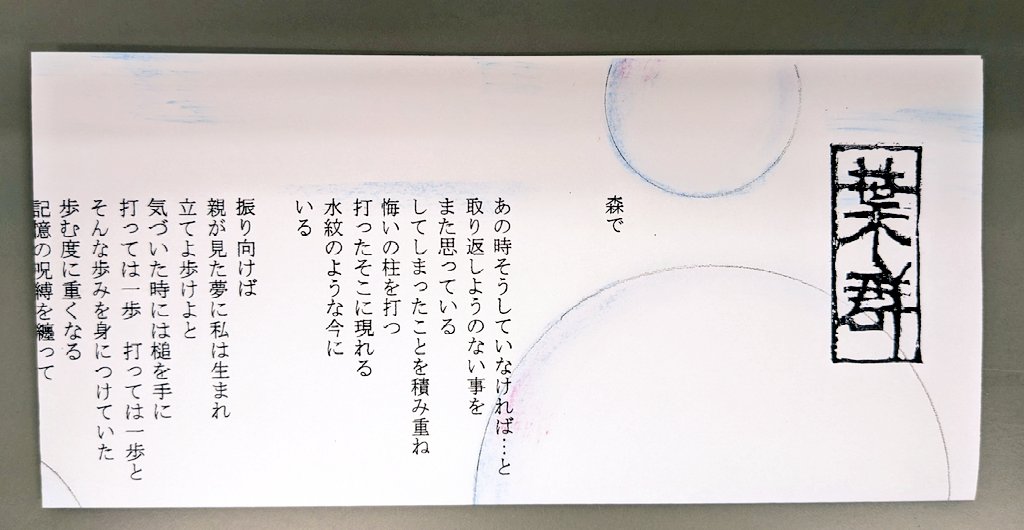 葉群
森で
あの時そうしていなければ…と
取り返しようのない事を
また思っている
してしまったことを積み重ね
悔いの柱を打つ
打ったそこに現れる
水紋のような今に
いる
振り向けば
親が見た夢に私は生まれ
立てよ歩けよと
気づいた時には槌を手に
打っては一歩　打っては一歩と
そんな歩みを身につけていた
歩む度に重くなる
記憶の呪縛を纏って